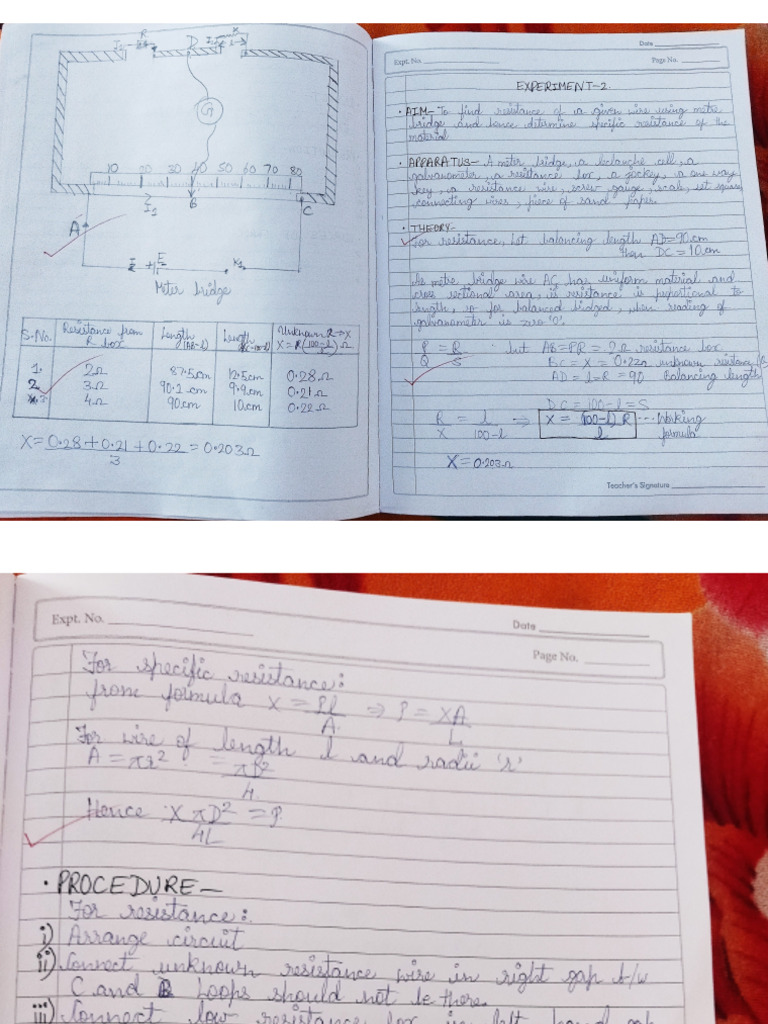 R
K
D
G
10 20 30 40 50 60 70 80
I₁
B
C
A
E
K₁
Meter bridge
S.No. Resistance from R box Length (AB=l) Length Unknown R → X X = R(100-l)/l Ω
1. 2Ω 87.5cm 12.5cm 0.28Ω
2. 3Ω 90.2 cm 9.9cm 0.21Ω
3 4Ω 90cm 10cm 0.22Ω
X = 0.28 + 0.21 + 0.22 = 0.203Ω
3
Date
Expt. No. Page No.
EXPERIMENT-2.
• AIM- To find resistance of a given wire using metre
bridge and hence ditermine specific resistance of the
material
• APPARATUS- A meter bridge, a
galvanometer, a resistance box, a jockey, a one way
key, a resistance wire, screw gauge, scale, set square
connecting wires, piece of sand paper.
• THEORY-
For resistance, Let balancing length AD=90.cm
then DC = 10cm
As metre bridge wire AC has uniform material and
cross sectional area, its resistance is proportional to
length, so for balanced bridged, when reading of
galvanometer is zero '0'.
P = R let AB = PR = 2Ω resistance box
Q S BC = X = 0.22Ω unknown resistance
AD = l = R = 90 Balancing length
DC = 100-l = S
R = l ⇒ X = (100-l) R ... Working
X 100-l l formula
X = 0.203Ω
Teacher's Signature
Expt. No. Date
Page No.
For specific resistance:
from formula X = ρl ⇒ ρ = XA
A. L
For wire of length l and radii 'r'
A = πr² = πD²
4
Hence X πD² = ρ
4L
• PROCEDURE-
For resistance:
i) Arrange circuit
ii) Connect unknown resistance wire in right gap b/w
C and B Loops should not be there.
iii) Connect low resistance box in left hand gap